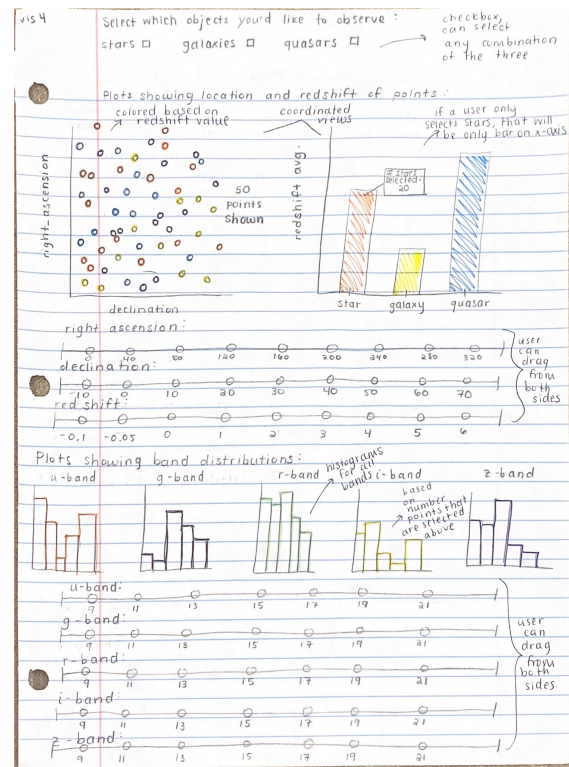 vis 4
Select which objects you'd like to observe :
stars galaxies quasars
checkbox,
can select
any combination
of the three
Plots showing location and redshift of points:
colored based on
redshift value
coordinated
views
if a user only
selects stars, that will
be only bar on x-axis
right_ascension
50
points
shown
declination
redshift avg.
# stars
selected=
20
star galaxy quasar
right ascension:
0 40 80 120 160 200 240 280 320
declination:
-10 0 10 20 30 40 50 60 70
redshift:
-0.1 -0.05 0 1 2 3 4 5 6
user
can
drag
from
both
sides
Plots showing band distributions:
u-band g-band r-band i-band z-band
histograms
for all
bands
based
on
number
points that
are selected
above
u-band:
9 11 13 15 17 19 21
g-band:
9 11 13 15 17 19 21
r-band:
9 11 13 15 17 19 21
i-band:
9 11 13 15 17 19 21
z-band:
9 11 13 15 17 19 21
user
can
drag
from
both
sides